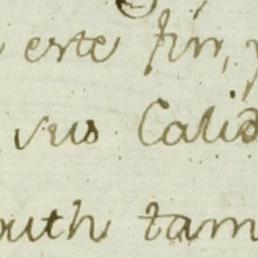 este fin,
sus Calid
outh tam